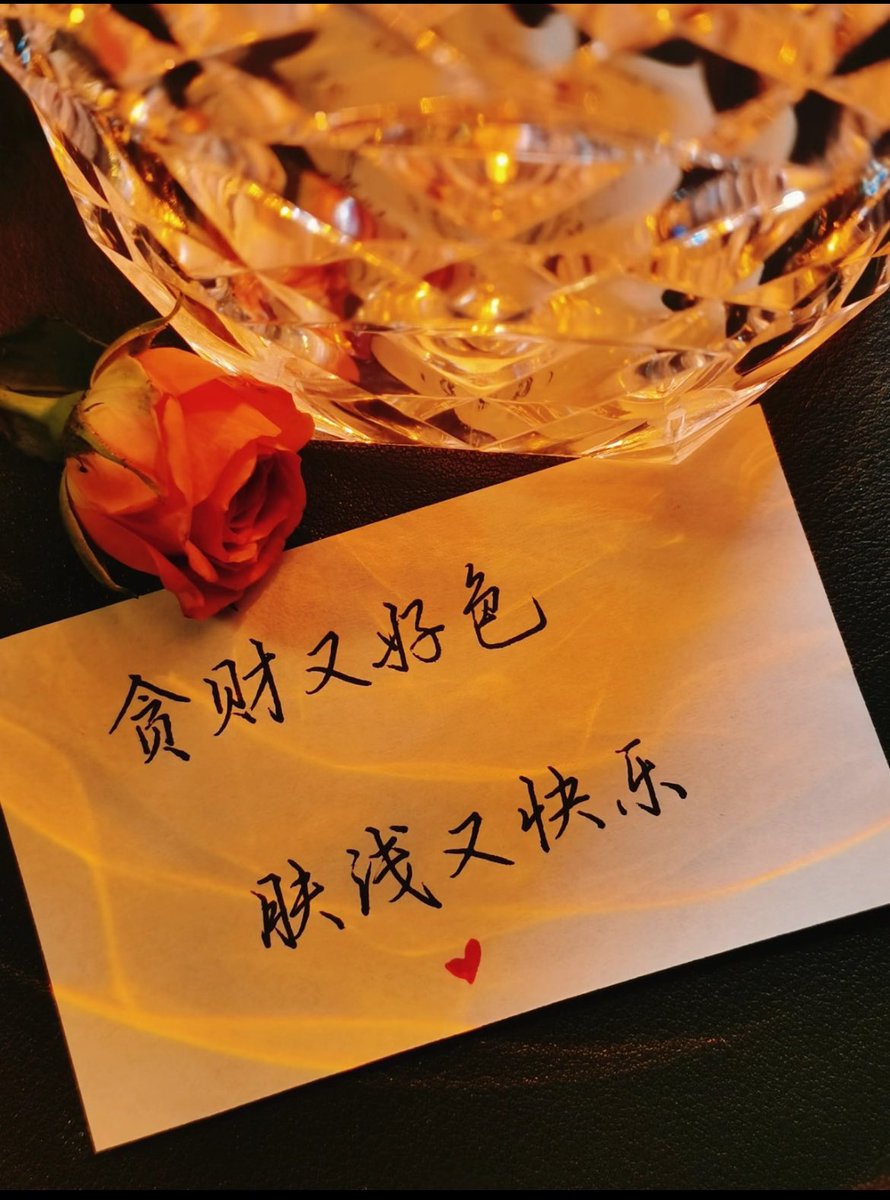 贪财又好色
肤浅又快乐